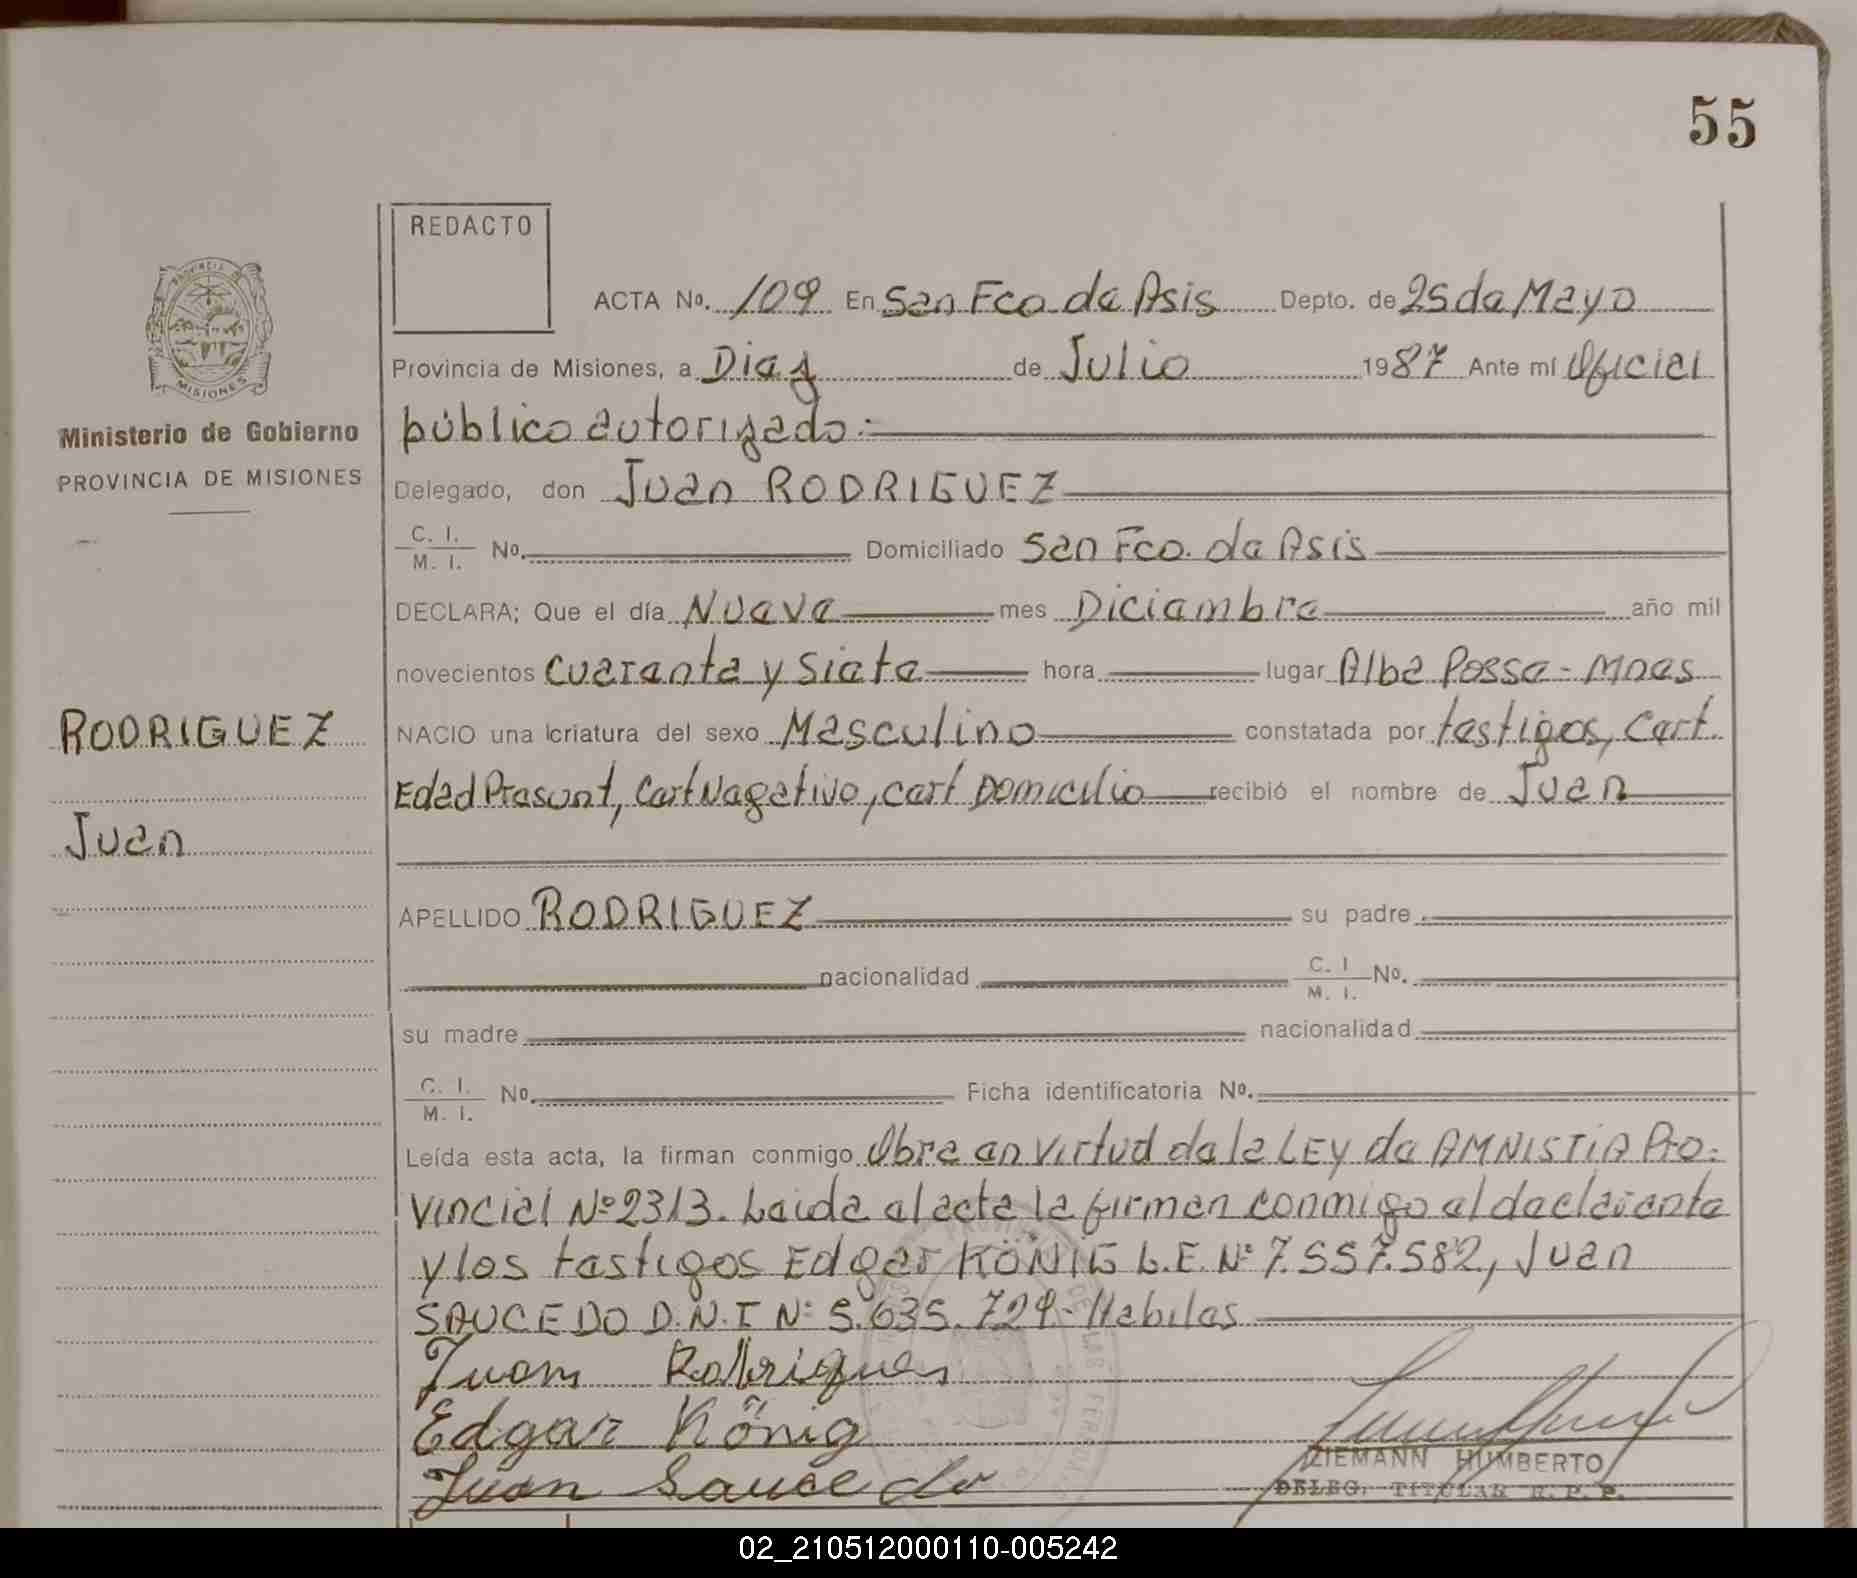 55
REDACTO
ACTA No. 109 En San Fco de Asis Depto. de 25 de Mayo
Provincia de Misiones, a Diez de Julio 1987 Ante mí Oficial
público autorizado:
Ministerio de Gobierno
PROVINCIA DE MISIONES
PROVINCIA
MISIONES
Delegado, don Juan RODRIGUEZ
C. I.
M. I. No. Domiciliado San Fco. de Asis
DECLARA; Que el día Nueve mes Diciembre año mil
novecientos cuarenta y Siete hora lugar Alba Posse - Mnes
RODRIGUEZ
NACIO una criatura del sexo Masculino constatada por testigos, Cert.
Edad Presunt, Cert Negativo, cert Domicilio recibió el nombre de Juan
Juan
APELLIDO RODRIGUEZ su padre
nacionalidad C. I
M. I. No.
su madre nacionalidad
C. I.
M. I. No. Ficha identificatoria No.
Leída esta acta, la firman conmigo Obre en virtud de la LEY de AMNISTIA Pro-
vincial Nº 2313. Leida el acta la firman conmigo el declarante
y los testigos Edgar KÖNIG L.E. Nº 7.557.582, Juan
SAUCEDO D.N.I Nº 5.635.729.- Habiles
Juan Rodrigues
Edgar König
Juan Saucedo
ZIEMANN HUMBERTO
DELEG. TITULAR R. P. P.
02_210512000110-005242